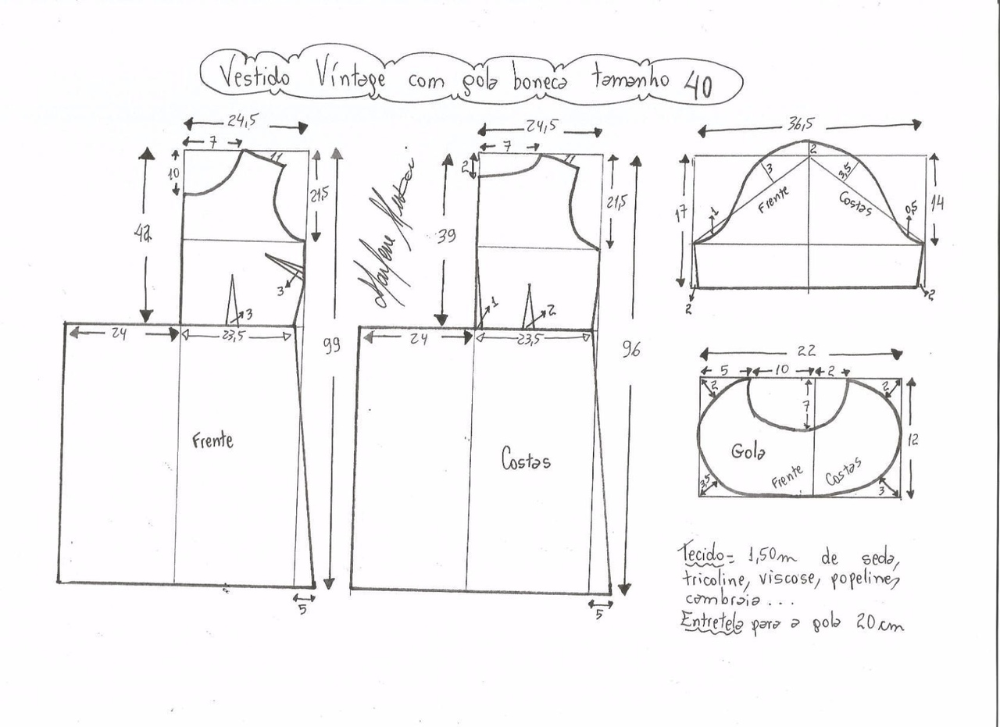 Vestido Víntage com gola boneca tamanho 40
24,5
7
10
11
21,5
42
3
3
24
23,5
99
Frente
5
24,5
7
2
11
21,5
39
1
2
24
23,5
96
Costas
5
36,5
2
3
3,5
Frente
Costas
1
0,5
17
14
2
2
22
5
10
2
2
2
7
12
Gola
Frente
Costas
3,5
3
Tecido= 1,50m de seda,
tricoline, viscose, popeline,
cambraia...
Entretela para a gola 20cm